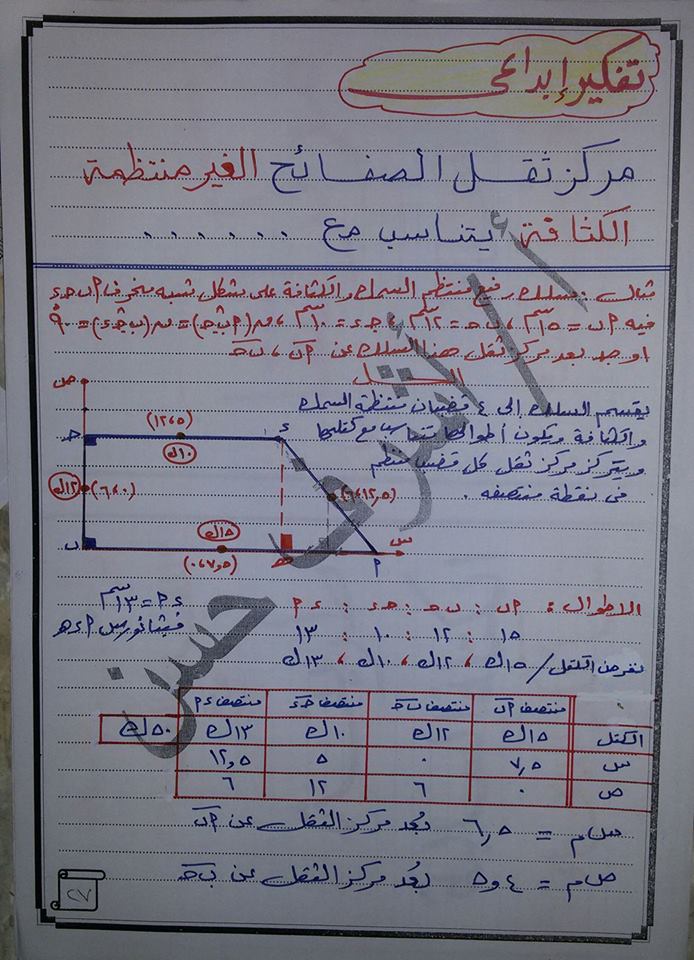 تفكير إبداعى
مركز ثقل الصفائح الغير منتظمة
الكثافة يتناسب مع ......
مثال : سلك رفيع منتظم السمك والكثافة على شكل شبه منحرف P ب حـ ء
فيه P ب = ١٥ سم ، ب حـ = ١٢ سم ، حـ ء = ١٠ سم ، ق(P ب حـ) = ق(ب حـ ء) = ٩٠°
اوجد بعد مركز ثقل هذا السلك عن P ب ، ب حـ
الحـــل
يقسم السلك إلى ٤ قضبان منتظمة السمك
والكثافة وتكون أطوالها متناسبة مع كتلتها
ويتركز مركز ثقل كل قضيب منتظم
فى نقطة منتصفه .
ص
حـ
(١٢،٥)
١٠ك
ء
١٢ك
(٦،٠)
(٦،١٢,٥)
ب
١٥ك
(٠،٧,٥)
هـ
P
س
الاطوال : P ب : ب حـ : حـ ء : ء P
ء P = ١٣ سم
١٥ : ١٢ : ١٠ : ١٣
فيثاغورس P ء هـ
نفرض الكتل / ١٥ك ، ١٢ك ، ١٠ك ، ١٣ك
منتصف P ب منتصف ب حـ منتصف حـ ء منتصف ء P
الكتل ١٥ك ١٢ك ١٠ك ١٣ك ٥٠ك
س ٧,٥ ٠ ٥ ١٢,٥
ص ٠ ٦ ١٢ ٦
س م = ٦,٥ بُعد مركز الثقل عن P ب
ص م = ٤و٥ بُعد مركز الثقل عن ب حـ
أ / أشرف حسن